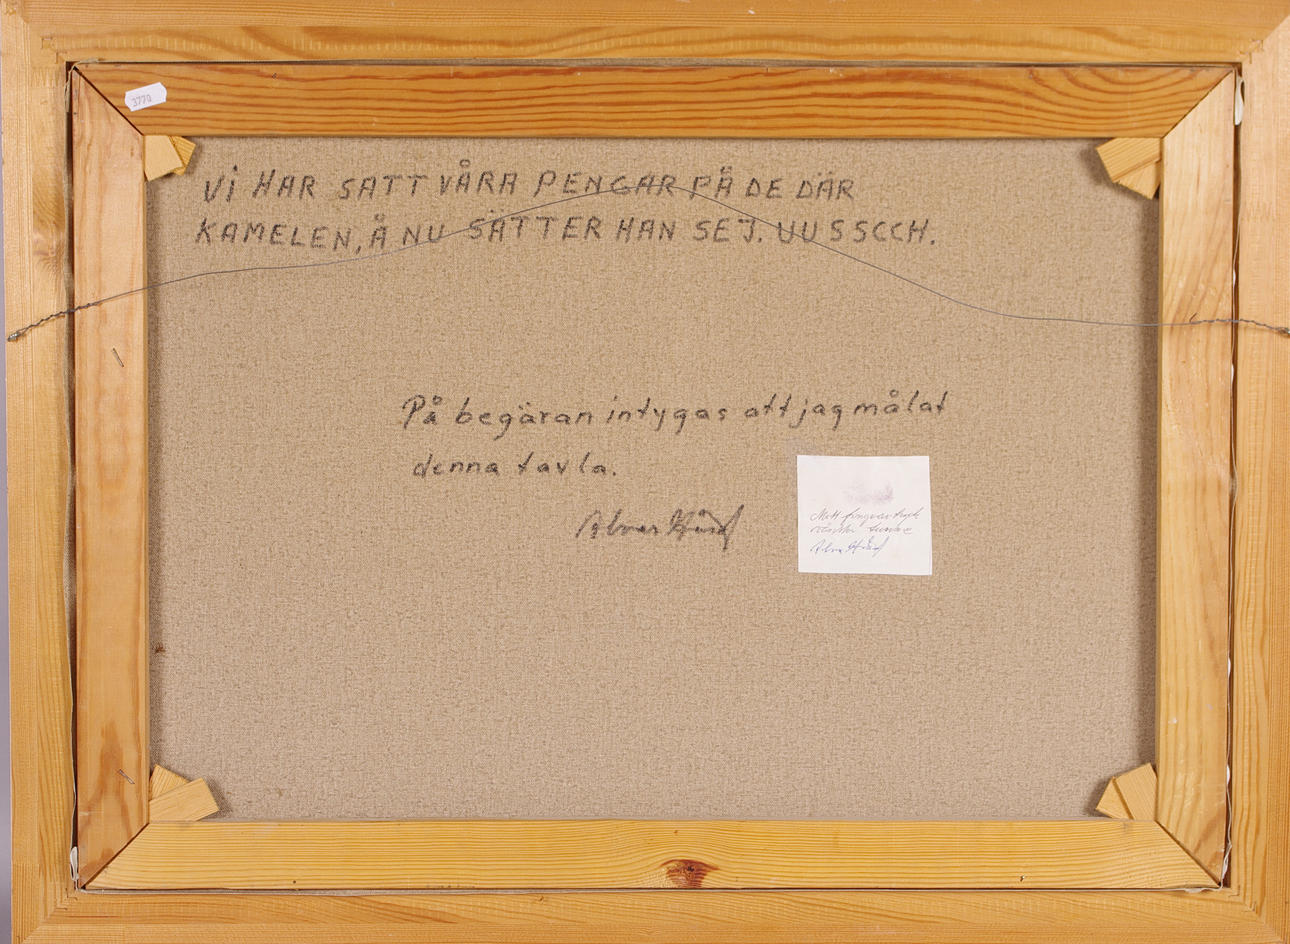 3770
VI HAR SATT VÅRA PENGAR PÅ DE DÄR
KAMELEN, Å NU SÄTTER HAN SEJ. UUSSCCH.
På begäran intygas att jag målat
denna tavla.
Mitt fingeravtryck